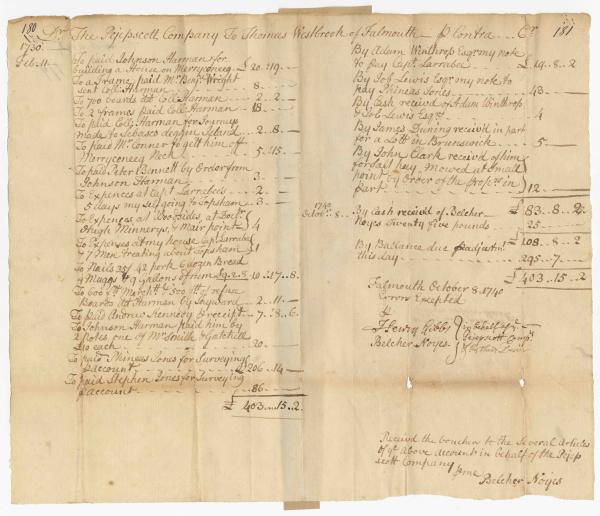 180 Dr. The Pejepscott Company To Thomas Westbrook of Falmouth P Contra Cr. 181
1730.
Feb. 11. To paid Johnson Harman for
building a House on Merryconeeg £20..19..
To a frame paid Mr. Benja. Wright
sent Coll: Harman 8
To 700 boards dd Coll: Harman 2..2
To 2 frames paid Coll: Harman 18
To paid Coll: Harman for Journeys
made to Sebasco deggin Island 2..8
To paid Mr. Conner to gett him off
Merryconeeg Neck 5..15
To paid Peter Bennett by Order from
Johnson Harman 3
To Expences at Capt. Larrabees 2
5 days my self going to Topsham 3
To Expences at Woodsides, at Docr.
Hugh Minnerys, & Mair point 4
To Expences at my house Capt. Larrabe
& 7 Men treating about Topsham £1
To Nails 35/ 42 pork Cuozen Bread
& Muggs & 9 Gallons of rum £9.2.8 10..17..8
To 600 ft. Match & 500 ft. of refuse
Boards dd Harman by Inguard 2..11
To paid Andrew Kennedy P receipt 7..18..6
To Johnson Harman paid him by
2 notes one of Mr. Smith & Getchill
£10 each 20
To paid Phineas Jones for Surveying
P account £206..14
To paid Stephen Jones for Surveying
P account 86
£403..15..2
By Adam Winthrop Esqr. my note
to pay Capt. Larrabe £19..8..2
By Job Lewis Esqr. my note to
pay Phineas Jones 43
By Cash receivd of Adam Winthrop
& Job Lewis Esqrs. 4
By James Duning receiv'd in part
for a Lott in Brunswick 5
By John Clark receivd of him
for Salt hey, Mowed at Small
point by Order of the Proprs. in
part 12
£83..8..2
1740
Octobr. 8. By Cash receivd of Belcher
Noyes Twenty five pounds 25
£108..8..2
By Ballance due P adjustmt.
this day 295..7
£403..15..2
Falmouth October 8. 1740
Errors Excepted
P
Henry Gibbs
Belcher Noyes
in behalf of ye.
Pejepscott Compa.
Receivd the voucher to the Several Articles
of ye. above account in behalf of the Pejep
scott Company
P me
Belcher Noyes